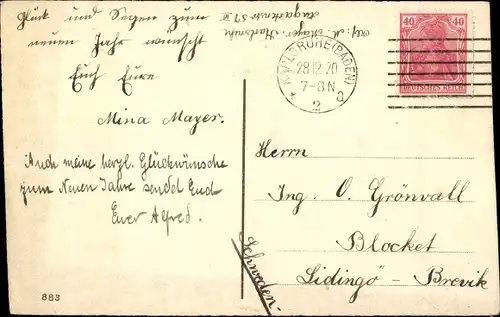 Glück und Segen zum
neuen Jahr wünscht
Euch Eure
Mina Mayer.
Auch meine herzl. Glückwünsche
zum Neuen Jahre sendet Euch
Euer Alfred.
883
Abs: M. Mayer, Karlsruhe
Augartenstr 57 III
KARLSRUHE (BADEN)
28.12.20
7-8 N
* 2 a
40 40
DEUTSCHES REICH
Herrn
Ing. O. Grönvall
Blocket
Lidingö - Brevik
Schweden.